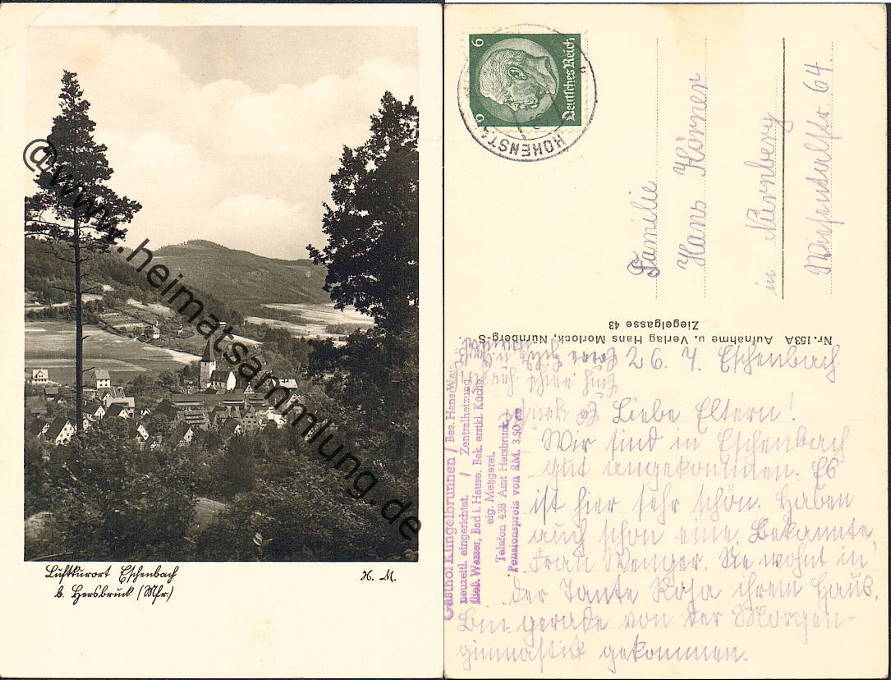 Luftkurort Eschenbach
b. Hersbruck (Mfr.)
H. M.
@ www.heimatsammlung.de
6
Deutsches Reich
HOHENSTA
Familie
Hans Körner
in Nürnberg
64.
Nr. 153A Aufnahme u. Verlag Hans Morlock, Nürnberg-S.
Ziegelgasse 43
Gasthof Klingelbrunnen / Bes. Hans
neuzeitl. eingerichtet / Zentralheizung,
fließ. Wasser, Bad i. Hause. Bek. erstkl. Küche,
eig. Metzgerei.
Telefon 438 Amt Hersbruck
Pensionspreis von RM. 3.50 an
26. 7. Eschenbach
Liebe Eltern!
Wir sind in Eschenbach
gut angekommen. Es
ist hier sehr schön. Haben
auch schon eine Bekannte,
Frau Wenger. Sie wohnt in
der Tante Rosa ihrem Haus.
Bin gerade von der Morgen-
gimnastik gekommen.